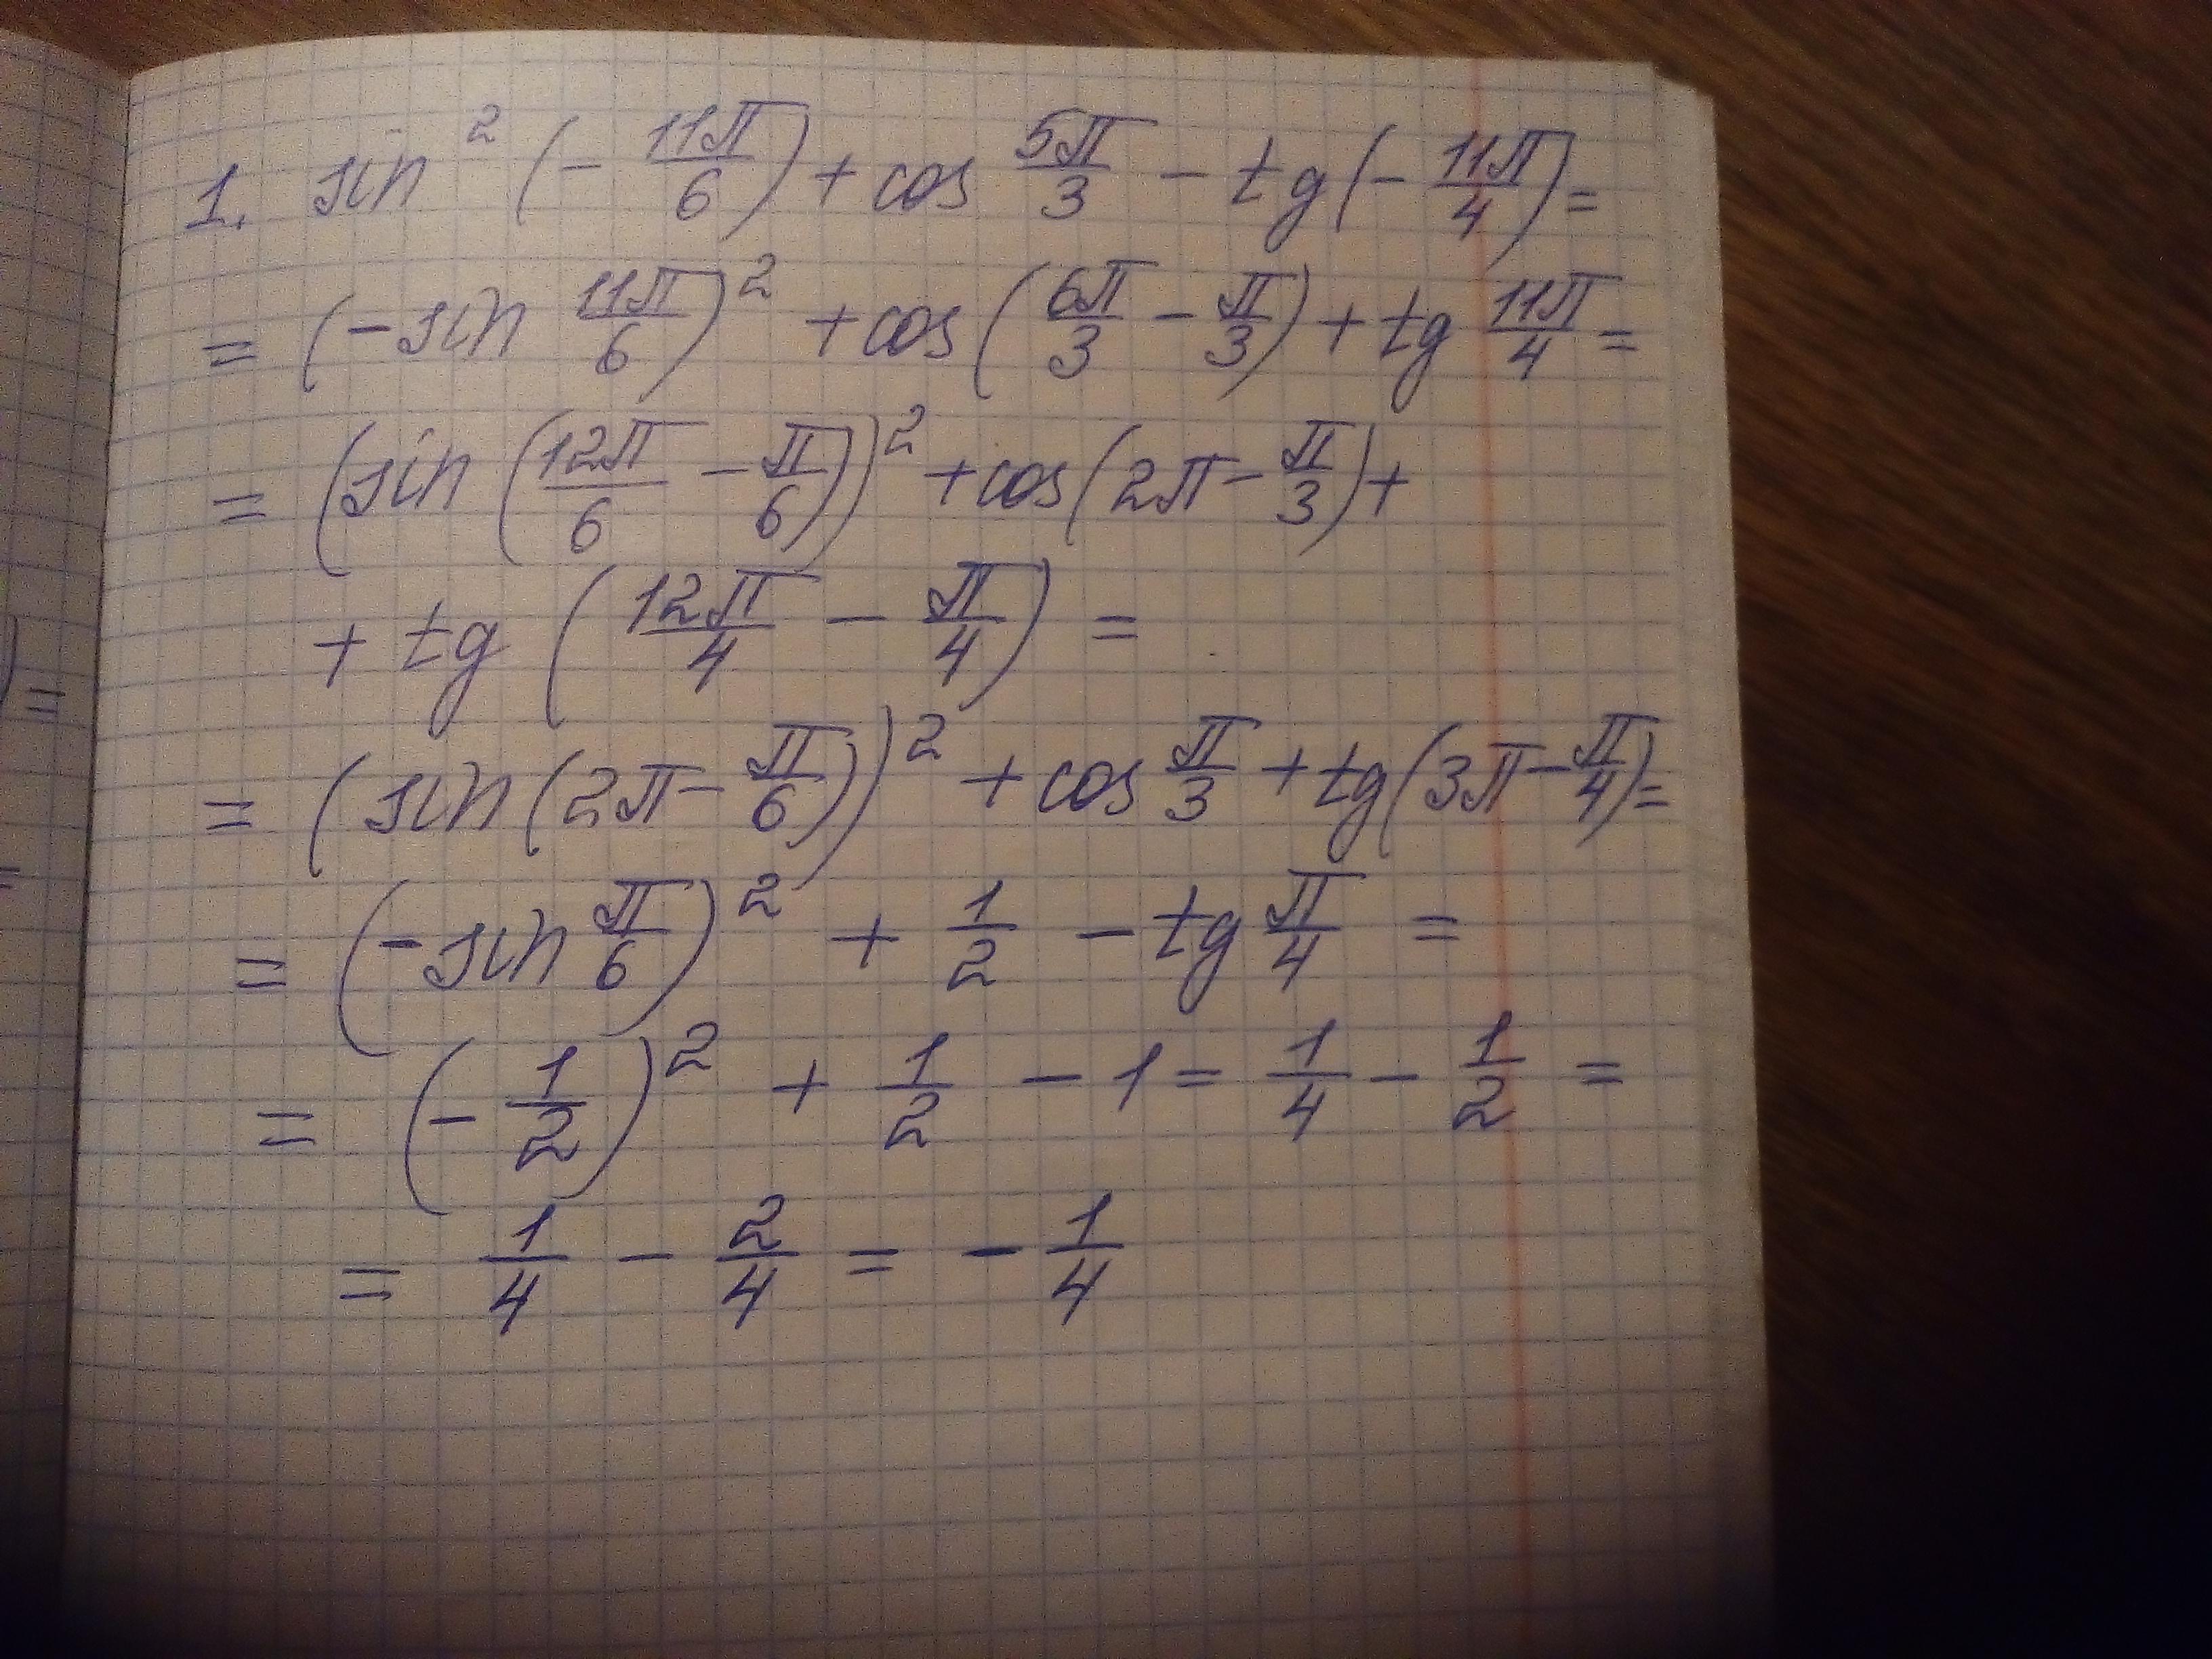 1. sin² (- 11π/6) + cos 5π/3 - tg(- 11π/4) =
= (- sin 11π/6)² + cos(6π/3 - π/3) + tg 11π/4 =
= (sin (12π/6 - π/6))² + cos(2π - π/3) +
+ tg (12π/4 - π/4) =
= (sin(2π - π/6))² + cos π/3 + tg(3π - π/4) =
= (- sin π/6)² + 1/2 - tg π/4 =
= (- 1/2)² + 1/2 - 1 = 1/4 - 1/2 =
= 1/4 - 2/4 = - 1/4
) =
=